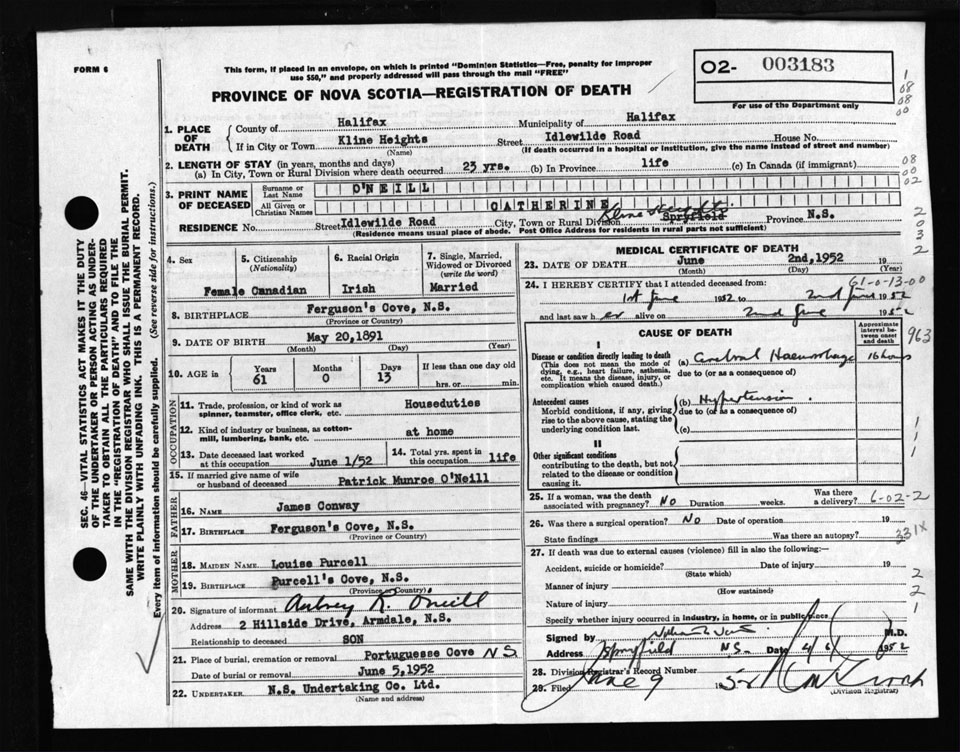 FORM 6
This form, if placed in an envelope, on which is printed "Dominion Statistics—Free, penalty for improper
use $50," and properly addressed will pass through the mail "FREE"
PROVINCE OF NOVA SCOTIA—REGISTRATION OF DEATH
02- 003183
For use of the Department only
1. PLACE OF DEATH
County of Halifax Municipality of Halifax
If in City or Town Kline Heights Street Idlewilde Road House No.
(Name) (If death occurred in a hospital or institution, give the name instead of street and number)
2. LENGTH OF STAY (in years, months and days)
(a) In City, Town or Rural Division where death occurred 23 yrs. (b) In Province life (c) In Canada (if immigrant)
3. PRINT NAME OF DECEASED
Surname or Last Name O'NEILL
All Given or Christian Names CATHERINE
Kline Heights
RESIDENCE No. Street Idlewilde Road City, Town or Rural Division Spryfield Province N.S.
(Residence means usual place of abode. Post Office Address for residents in rural parts not sufficient)
4. Sex
Female
5. Citizenship
(Nationality)
Canadian
6. Racial Origin
Irish
7. Single, Married, Widowed or Divorced
(write the word)
Married
8. BIRTHPLACE Ferguson's Cove, N.S.
(Province or Country)
9. DATE OF BIRTH May 20,1891
(Month) (Day) (Year)
10. AGE in Years Months Days If less than one day old
61 0 13 hrs. or min.
OCCUPATION
11. Trade, profession, or kind of work as
spinner, teamster, office clerk, etc. Houseduties
12. Kind of industry or business, as cotton-
mill, lumbering, bank, etc. at home
13. Date deceased last worked
at this occupation June 1/52
14. Total yrs. spent in
this occupation life
15. If married give name of wife
or husband of deceased Patrick Munroe O'Neill
FATHER
16. NAME James Conway
17. BIRTHPLACE Ferguson's Cove, N.S.
(Province or Country)
MOTHER
18. MAIDEN NAME Louise Purcell
19. BIRTHPLACE Purcell's Cove, N.S.
(Province or Country)
20. Signature of informant Aubrey R. Oneill
Address 2 Hillside Drive, Armdale, N.S.
Relationship to deceased SON
21. Place of burial, cremation or removal Portuguesse Cove N S.
Date of burial or removal June 5,1952
22. UNDERTAKER N.S. Undertaking Co. Ltd.
MEDICAL CERTIFICATE OF DEATH
23. DATE OF DEATH June 2nd,1952 19
(Month) (Day) (Year)
61-0-13-00
24. I HEREBY CERTIFY that I attended deceased from:
1st June 1952 to 2nd June 1952
and last saw her alive on 2nd June 1952
CAUSE OF DEATH
Approximate interval between onset and death
963
I
Disease or condition directly leading to death
(This does not mean the mode of
dying, e.g., heart failure, asthenia,
etc. It means the disease, injury, or
complication which caused death.)
(a) Cerebral Haemorrhage 16 hours
due to (or as a consequence of)
Antecedent causes
Morbid conditions, if any, giving
rise to the above cause, stating the
underlying condition last.
(b) Hypertension.
due to (or as a consequence of)
(c)
II
Other significant conditions
contributing to the death, but not
related to the disease or condition
causing it.
25. If a woman, was the death
associated with pregnancy? No Duration weeks. Was there
a delivery? 6-02-2
26. Was there a surgical operation? No Date of operation 19
State findings Was there an autopsy? 331X
27. If death was due to external causes (violence) fill in also the following:—
Accident, suicide or homicide? Date of injury 19
(State which)
Manner of injury
(How sustained)
Nature of injury
Specify whether injury occurred in industry, in home, or in public place
Signed by M.D.
Address Spryfield N.S. Date 4/6/ 1952
28. Division Registrar's Record Number
29. Filed June 9 1952
(Division Registrar)
SEC. 46—VITAL STATISTICS ACT MAKES IT THE DUTY
OF THE UNDERTAKER OR PERSON ACTING AS UNDER-
TAKER TO OBTAIN ALL THE PARTICULARS REQUIRED
IN THE "REGISTRATION OF DEATH" AND TO FILE THE
SAME WITH THE DIVISION REGISTRAR WHO SHALL ISSUE THE BURIAL PERMIT.
WRITE PLAINLY WITH UNFADING INK. THIS IS A PERMANENT RECORD.
Every item of information should be carefully supplied. (See reverse side for instructions.)
1
08
08
00
08
00
02
2
0
3
2
1
1
1
2
2
1